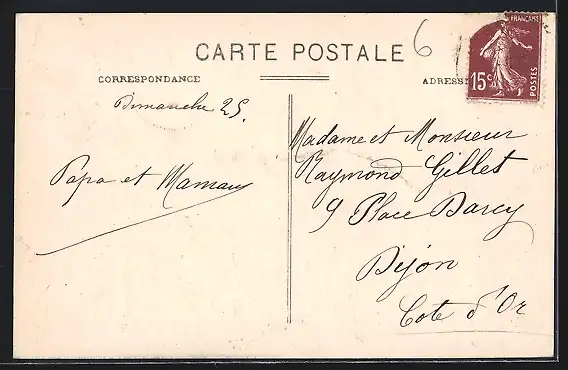 CARTE POSTALE
6
CORRESPONDANCE
ADRESSE
FRANÇAISE
15c
POSTES
Dimanche 25.
Papa et Maman
Madame et Monsieur
Raymond Gillet
9 Place Darcy
Dijon
Cote d'Or